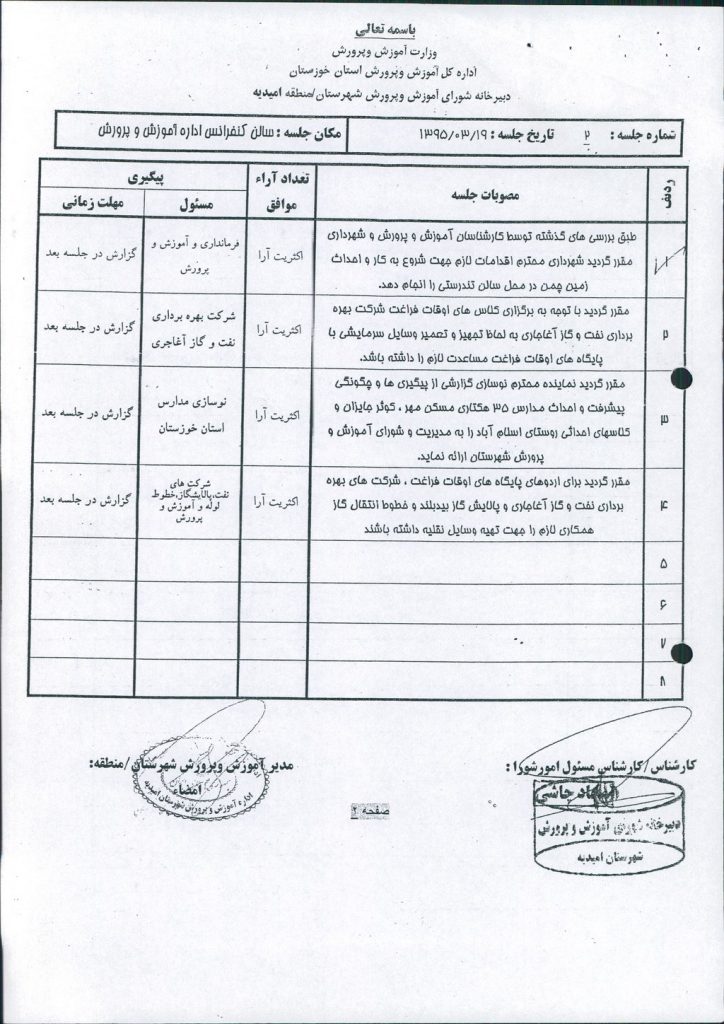 باسمه تعالی
وزارت آموزش وپرورش
اداره کل آموزش وپرورش استان خوزستان
دبیرخانه شورای آموزش وپرورش شهرستان/منطقه امیدیه
شماره جلسه : ۲ تاریخ جلسه : ۱۳۹۵/۰۳/۱۹ مکان جلسه : سالن کنفرانس اداره آموزش و پرورش
ردیف مصوبات جلسه تعداد آراء موافق پیگیری
مسئول مهلت زمانی
۱
طبق بررسی های گذشته توسط کارشناسان آموزش و پرورش و شهرداری
مقرر گردید شهرداری محترم اقدامات لازم جهت شروع به کار و احداث
زمین چمن در محل سالن تندرستی را انجام دهد.
اکثریت آرا
فرمانداری و آموزش و
پرورش
گزارش در جلسه بعد
۲
مقرر گردید با توجه به برگزاری کلاس های اوقات فراغت شرکت بهره
برداری نفت و گاز آغاجاری به لحاظ تجهیز و تعمیر وسایل سرمایشی با
پایگاه های اوقات فراغت مساعدت لازم را داشته باشد.
اکثریت آرا
شرکت بهره برداری
نفت و گاز آغاجری
گزارش در جلسه بعد
۳
مقرر گردید نماینده محترم نوسازی گزارشی از پیگیری ها و چگونگی
پیشرفت و احداث مدارس ۳۵ هکتاری مسکن مهر ، کوثر جایزان و
کلاسهای احداثی روستای اسلام آباد را به مدیریت و شورای آموزش و
پرورش شهرستان ارائه نماید.
اکثریت آرا
نوسازی مدارس
استان خوزستان
گزارش در جلسه بعد
۴
مقرر گردید برای اردوهای پایگاه های اوقات فراغت ، شرکت های بهره
برداری نفت و گاز آغاجاری و پالایش گاز بیدبلند و خطوط انتقال گاز
همکاری لازم را جهت تهیه وسایل نقلیه داشته باشند
اکثریت آرا
شرکت های
نفت،پالایشگاز،خطوط
لوله و آموزش و
پرورش
گزارش در جلسه بعد
۵
۶
۷
۸
کارشناس /کارشناس مسئول امورشورا :
مدیر آموزش وپرورش شهرستان /منطقه:
امضاء
جاشی
دبیرخانه شورای آموزش و پرورش
شهرستان امیدیه
اداره آموزش و پرورش شهرستان امیدیه
صفحه ۲